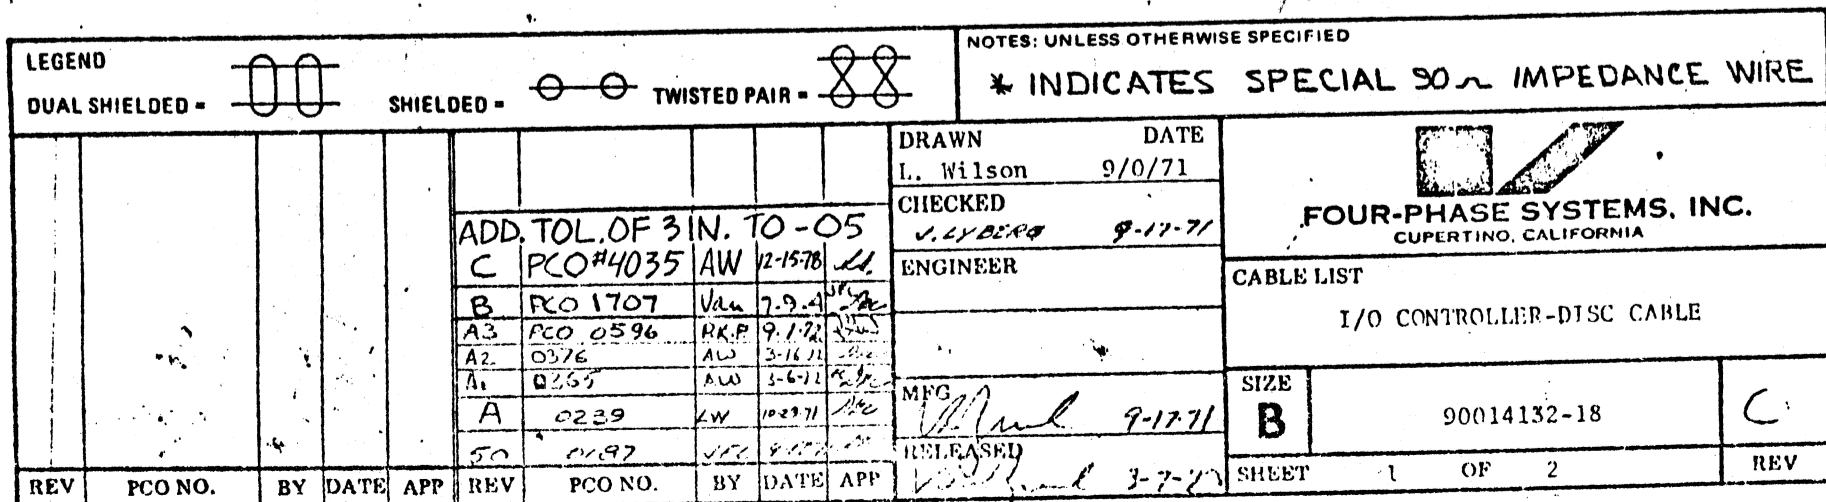 LEGEND
DUAL SHIELDED =
SHIELDED =
TWISTED PAIR =
NOTES: UNLESS OTHERWISE SPECIFIED
* INDICATES SPECIAL 90Ω IMPEDANCE WIRE
ADD. TOL. OF 3 IN. TO -05
C PCO#4035 AW 12-15-78
B PCO 1707 Van
A3 PCO 0596 R.K.P. 9.1.72
A2 0376 AW 3-16
A1 0365 AW 3-6-72
A 0239 LW 10-29-71
50 0197
REV PCO NO. BY DATE APP REV PCO NO. BY DATE APP
DRAWN DATE
L. Wilson 9/0/71
CHECKED
V. LYBERG 9-17-71
ENGINEER
MFG
9-17-71
RELEASED
FOUR-PHASE SYSTEMS, INC.
CUPERTINO, CALIFORNIA
CABLE LIST
I/O CONTROLLER-DISC CABLE
SIZE
B
90014132-18
C
SHEET 1 OF 2
REV